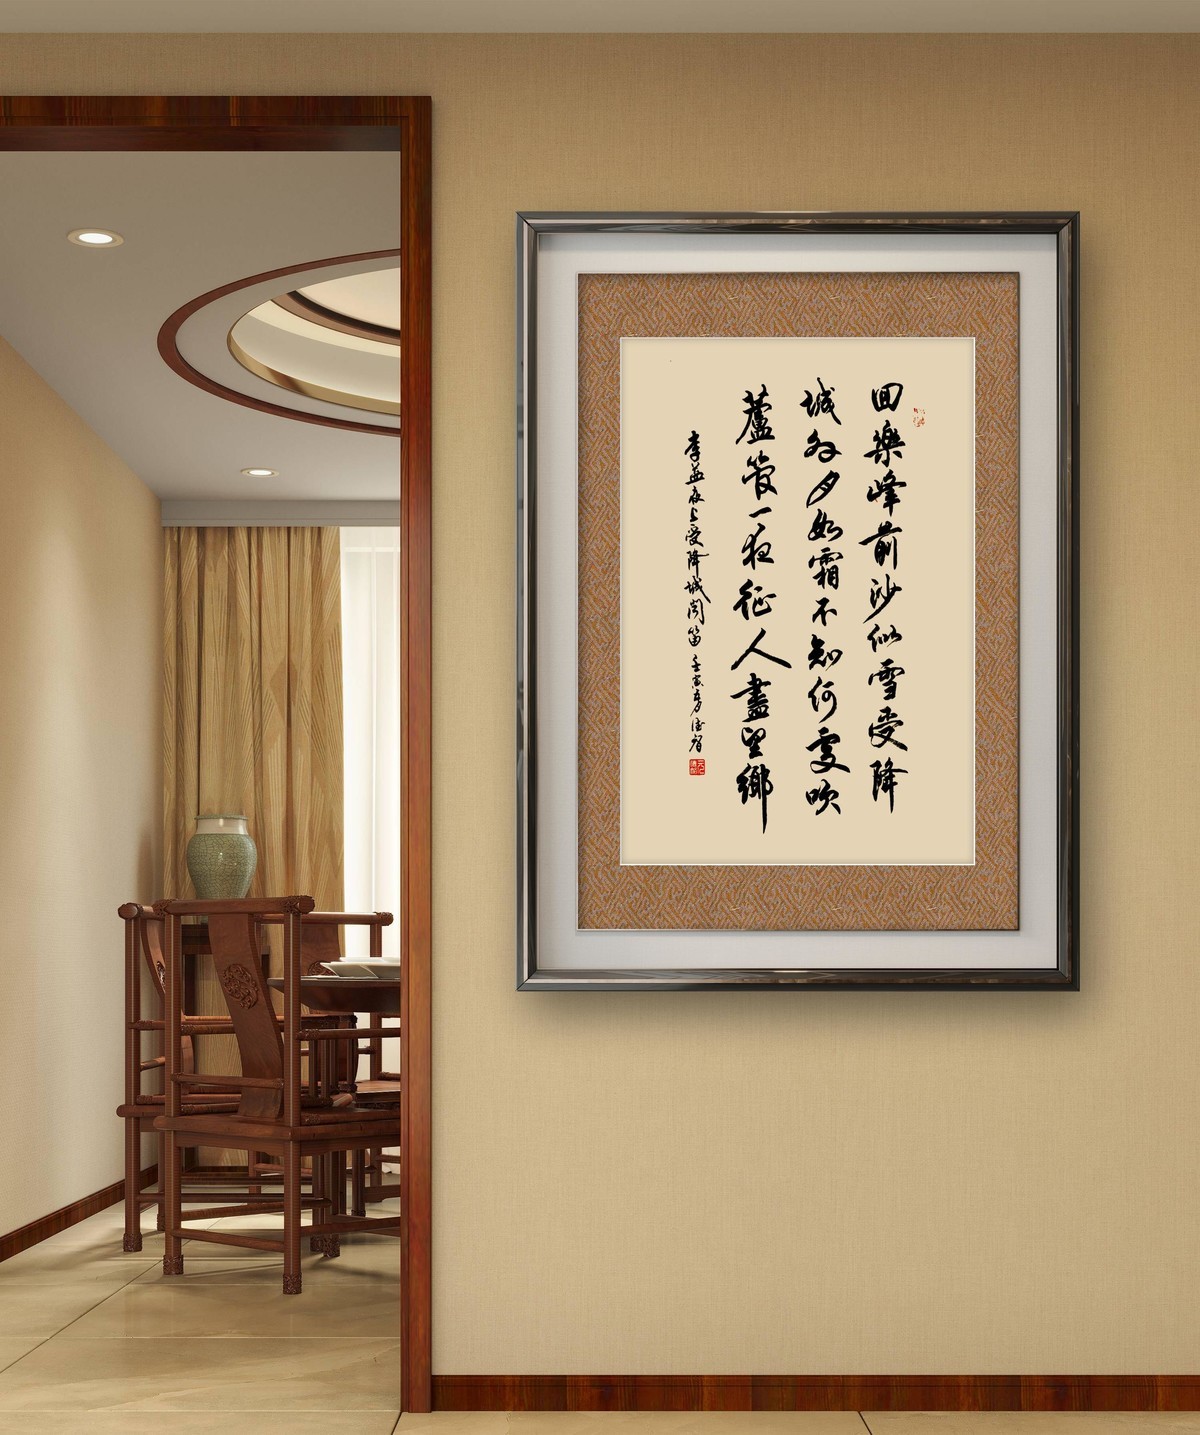 回樂峰前沙似雪受降
城外月如霜不知何處吹
蘆管一夜征人盡望鄉
李益夜上受降城聞笛 壬寅